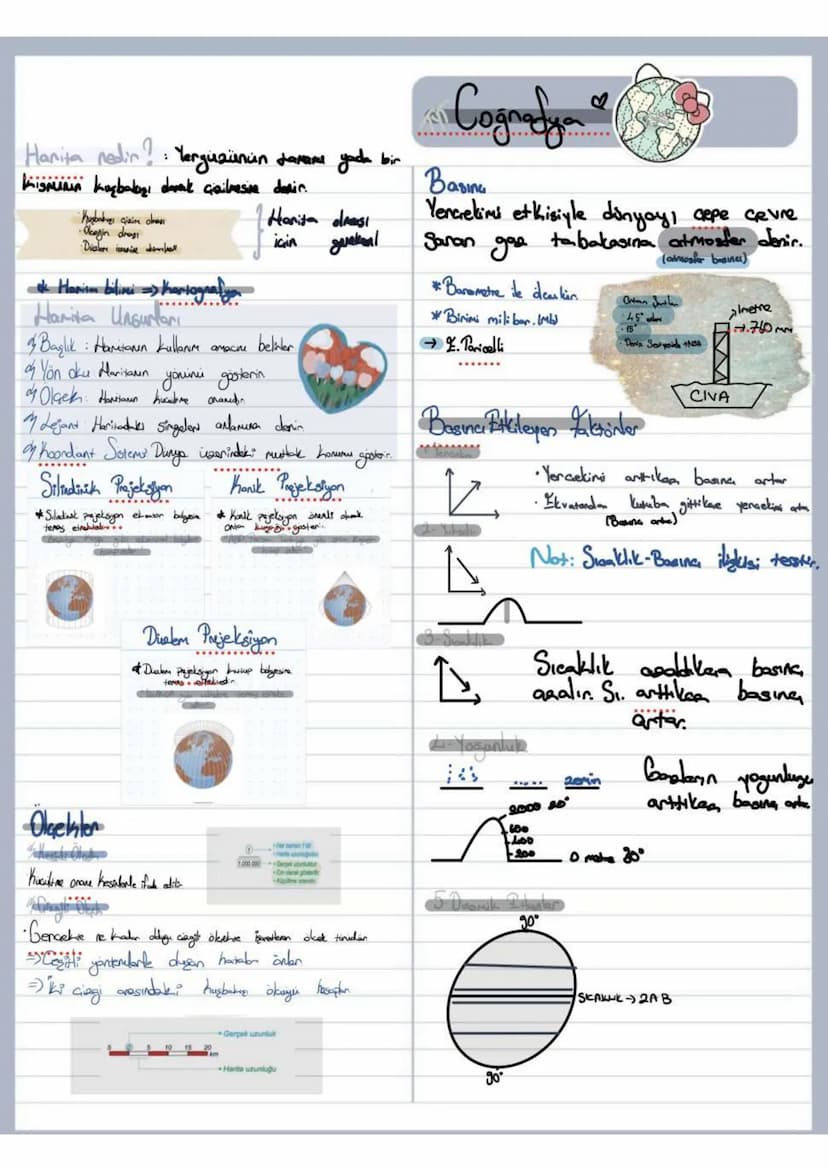 Coğrafya
Harita nedir? : Yeryüzünün tamamı yada bir
kısmının kuşbakışı olarak çizilmesine denir.
Kuşbakışı çizim olması
Ölçeğin olması
Düzleme
Harita olması
için gerekenl
* Harita bilimi => Kartografya
Harita Unsurları
Başlık : Haritanın kullanım amacını belirler
Yön oku: Haritanın yönünü gösterir.
Ölçek: Haritanın küçültme oranıdır.
Lejant: Haritadaki simgeleri anlamına denir.
Koordinat Sistemi Dünya üzerindeki mutlak konumu gösterir.
Silindirik Projeksiyon
* Silindirik projeksiyon ekvator bölgesine
temas etmektedir.
Konik Projeksiyon
* Konik projeksiyon
Düzlem Projeksiyon
* Düzlem projeksiyon kutup bölgesine
temas etmektedir.
Ölçekler
Kesirli Ölçek
Küçültme oranı kesirlerle ifade edilir
1
1.000.000
• Her zaman 1'dir
• Harita uzunluğudur
• Gerçek uzunluktur
• Cm olarak gösterilir
• Küçültme oranıdır
Çizgili Ölçek
ne kadar olduğu çizgili ölçekle
=> Çeşitli yöntemlerle oluşan hatalar önler
=> İki çizgi arasındaki kuşbakışı ölçüyü hesaplar
Gerçek uzunluk
5 0 5 10 15 20
km
Harita uzunluğu
Basınç
Yerçekimi etkisiyle dünyayı çepe çevre
saran gaz tabakasına atmosfer denir.
(atmosfer basıncı)
* Barometre ile ölçülür.
* Birimi milibar. (Mb)
→ E. Toriçelli
45° enlemi
15°
1 metre
→ 760 mm
CIVA
Basıncı Etkileyen Faktörler
1- Yerçekimi
• Yerçekimi arttıkça basınç artar
• Ekvatordan kutuba gittikçe yerçekimi artar
(Basınç artar)
2- Yükselti
Not: Sıcaklık-Basınç ilişkisi terstir.
3- Sıcaklık
Sıcaklık azaldıkça basınç
azalır. Sı. arttıkça basınç
artar.
4- Yoğunluk
zemin
Gazların yoğunluğu
arttıkça basınç artar.
600
400
200
0 metre 30°
5 Dinamik Etkenler
90°
SICAKLIK → 2 A B
90°